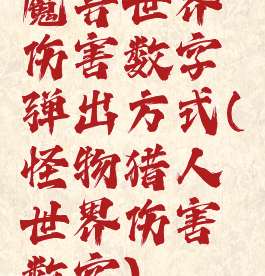 魔兽世界
伤害数字
弹出方式(
怪物猎人
世界伤害
数字)